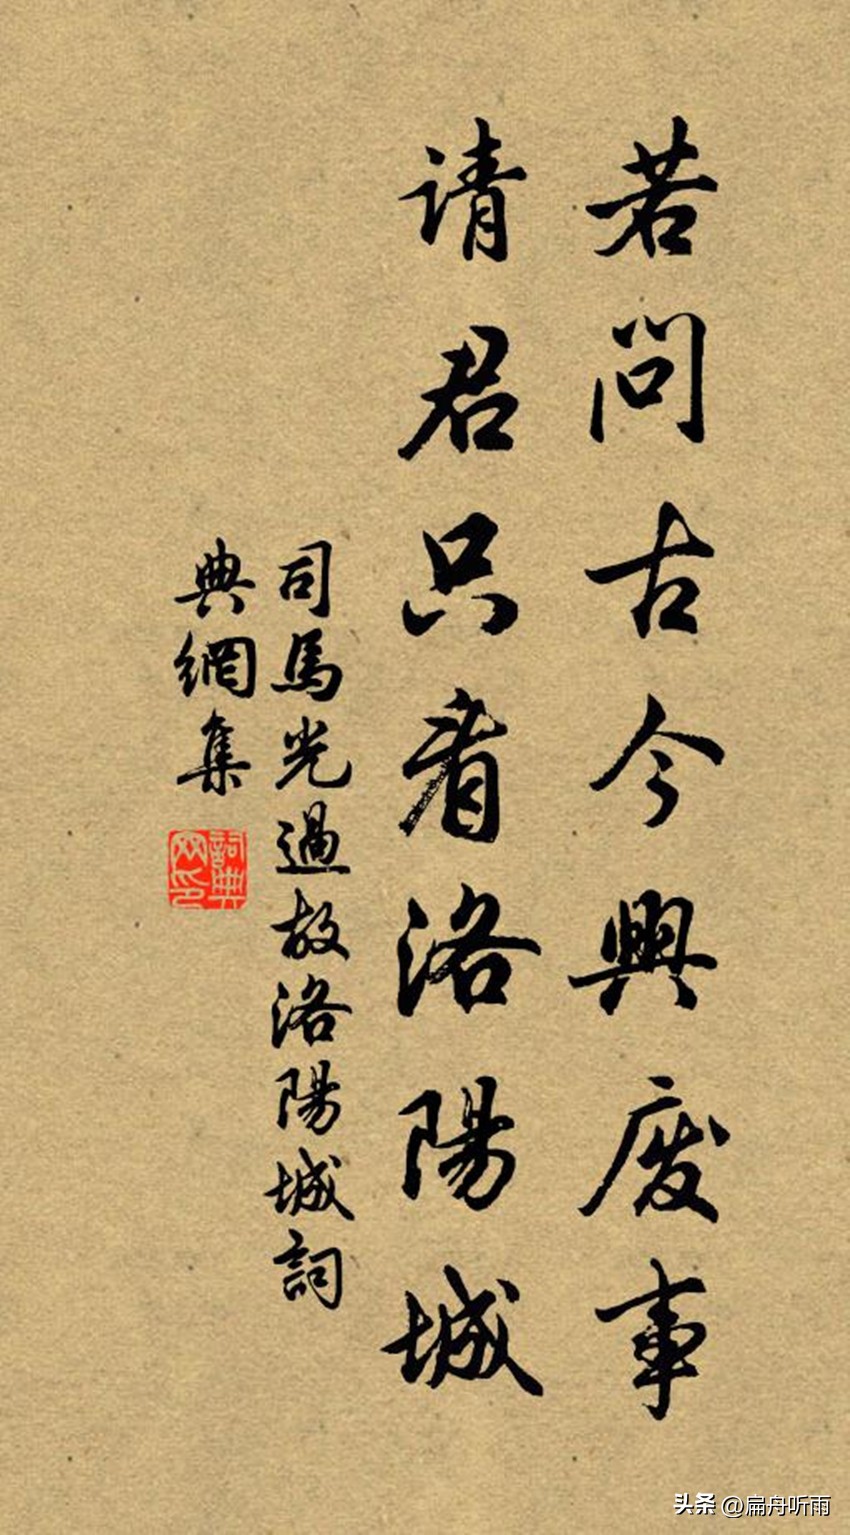 若問古今興废事
请君只看洛陽城
司馬光過故洛陽城詞
典網集
詞典
网印
头条 @扁舟听雨